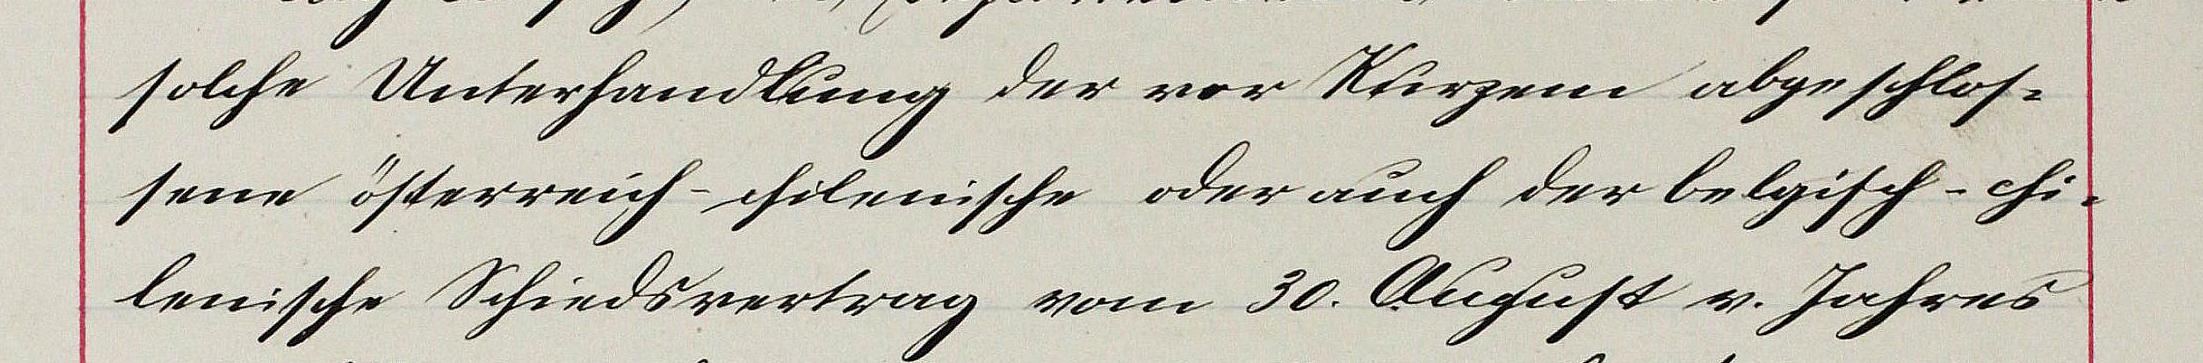 solche Unterhandlung der vor Kurzem abgeschlos-
sene österreich-chilenische oder auch der belgisch-chi-
lenische Schiedsvertrag vom 30. August v. Jahres